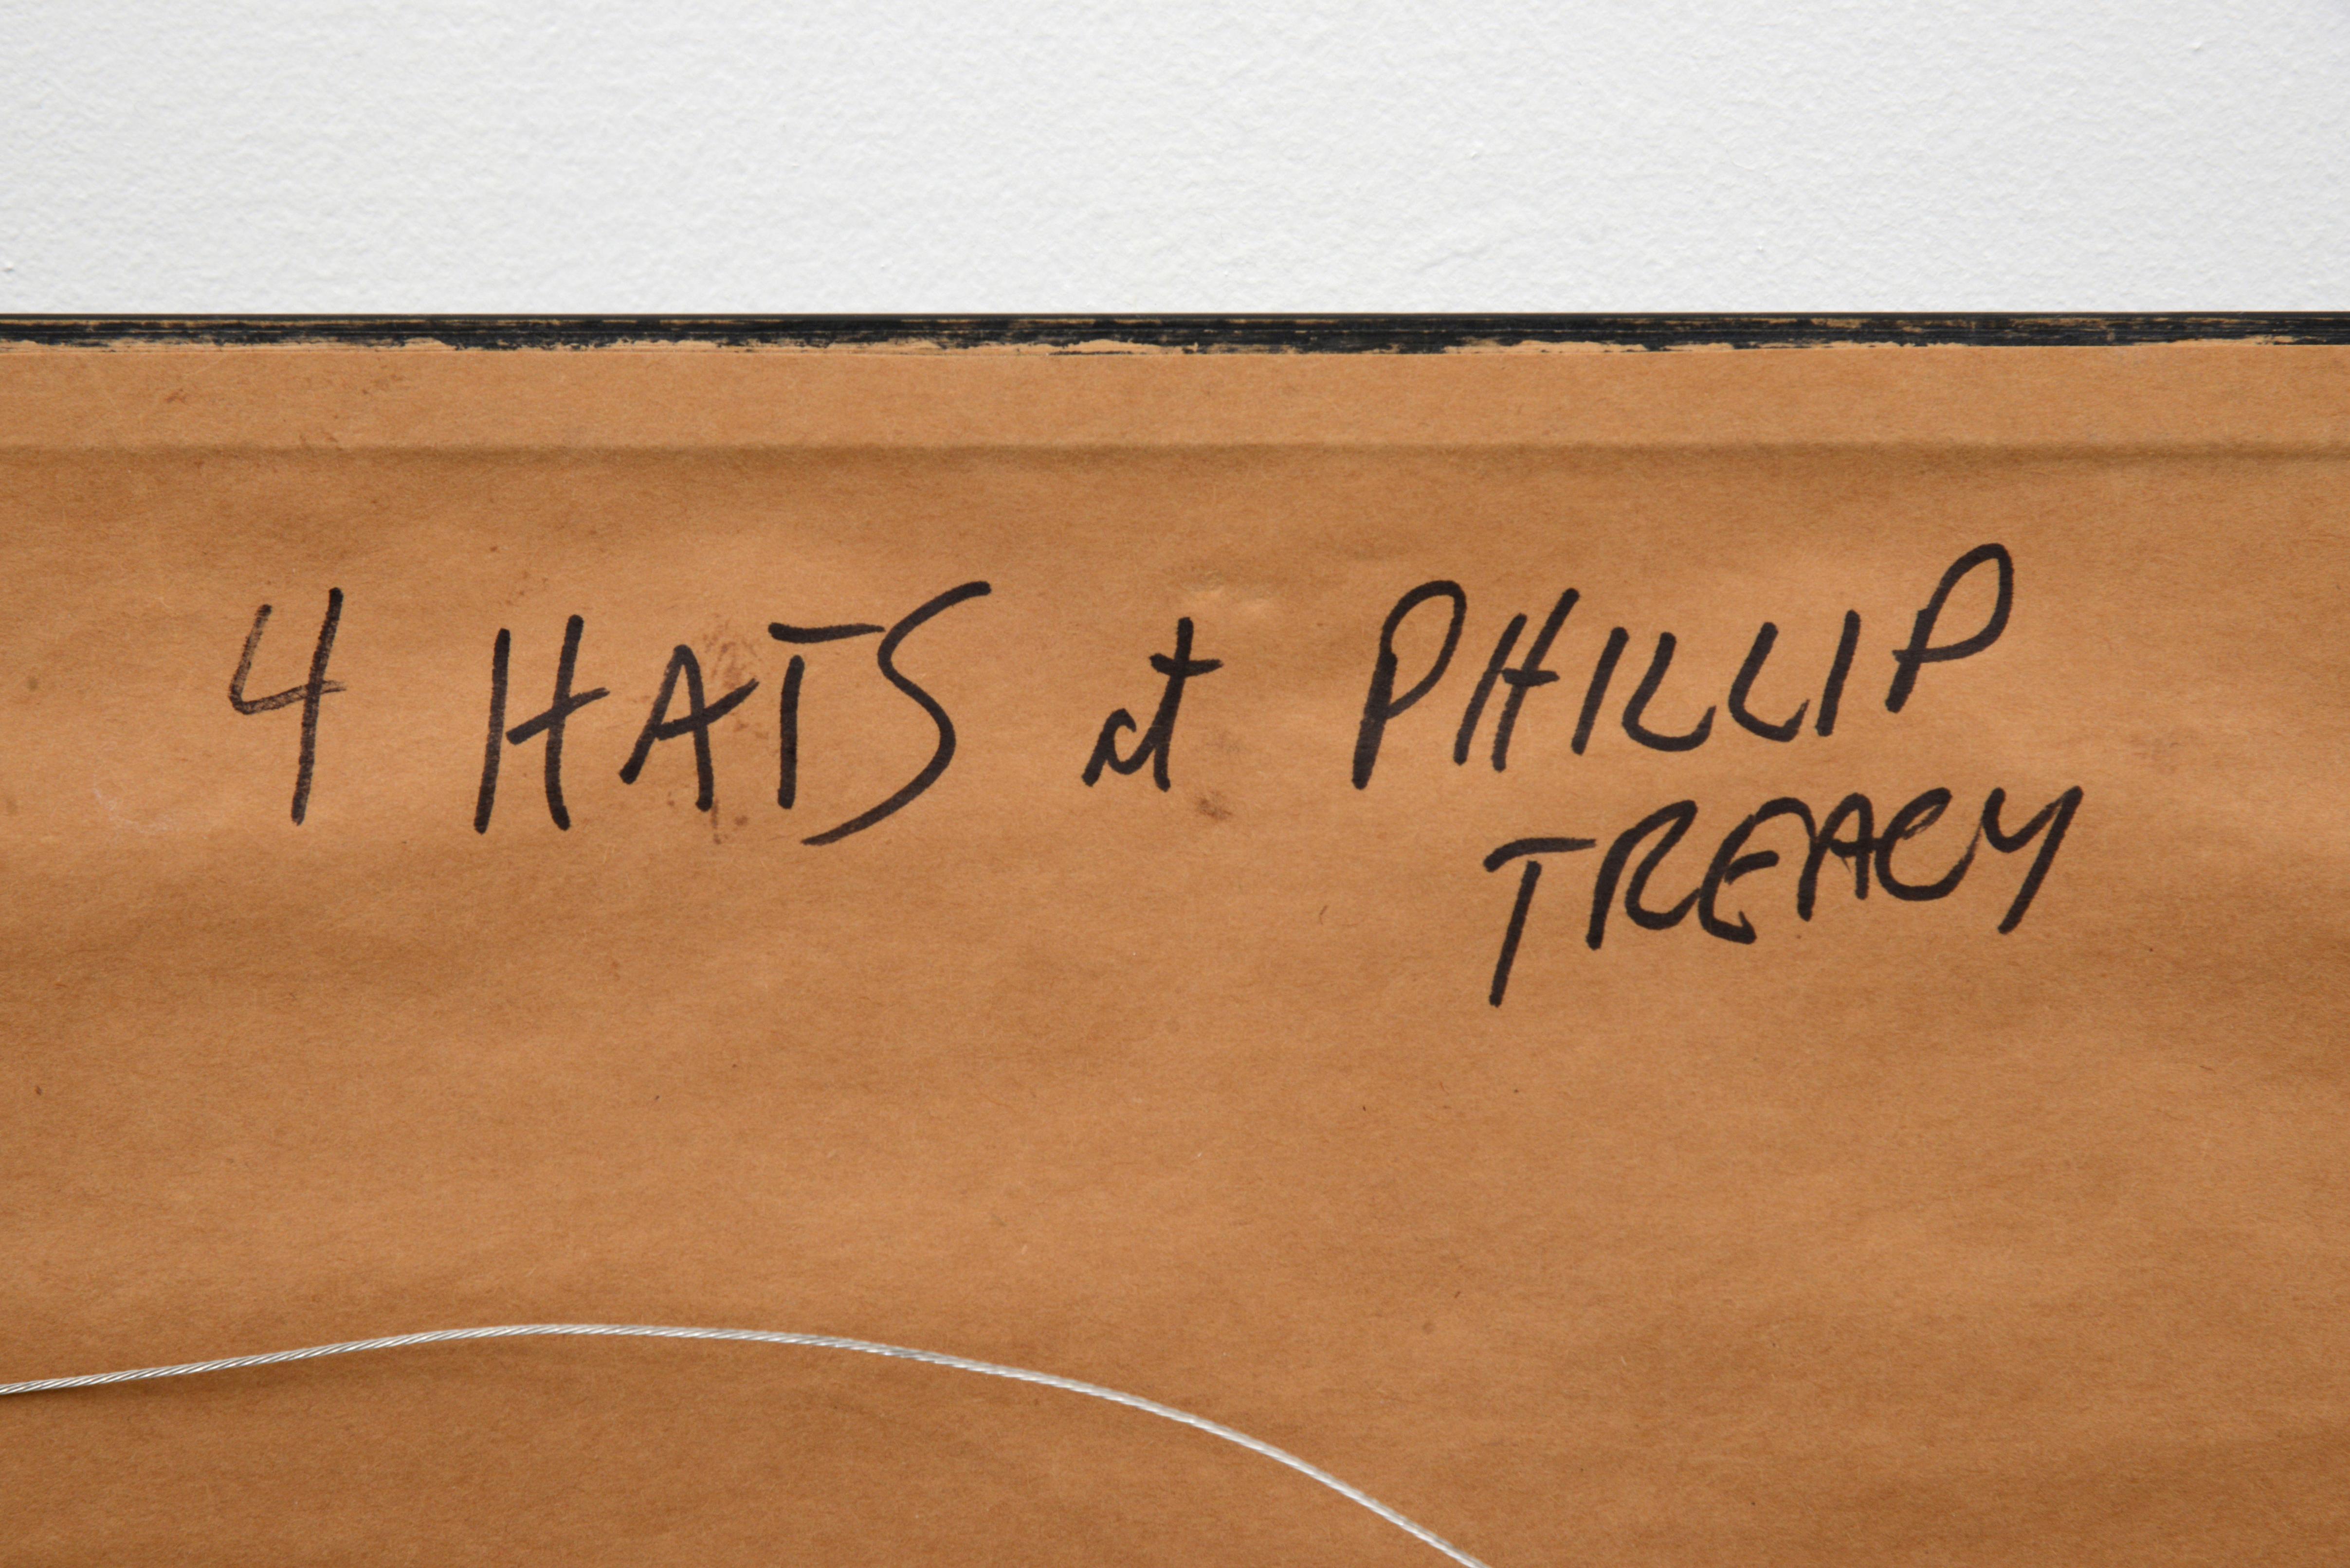 4 HATS at PHILLIP
TREACY